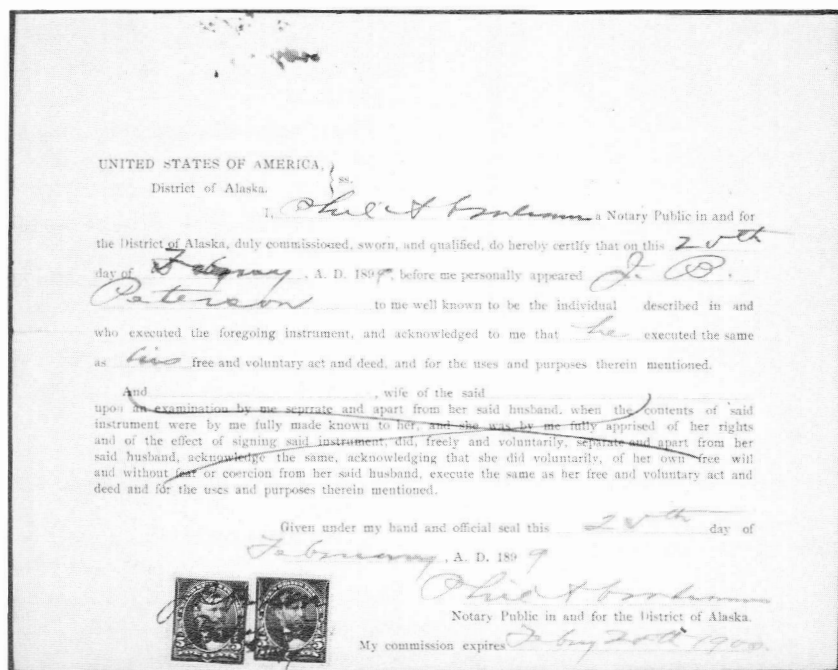 UNITED STATES OF AMERICA,
District of Alaska. } ss.
I, Phil a Notary Public in and for
the District of Alaska, duly commissioned, sworn, and qualified, do hereby certify that on this
day of February, A. D. 1899, before me personally appeared J. B.
Peterson to me well known to be the individual described in and
who executed the foregoing instrument, and acknowledged to me that he executed the same
as his free and voluntary act and deed, and for the uses and purposes therein mentioned.
And , wife of the said
upon an examination by me seprrate and apart from her said husband, when the contents of said
instrument were by me fully made known to her, and she was by me fully apprised of her rights
and of the effect of signing said instrument, did, freely and voluntarily, separate and apart from her
said husband, acknowledge the same, acknowledging that she did voluntarily, of her own free will
and without fear or coercion from her said husband, execute the same as her free and voluntary act and
deed and for the uses and purposes therein mentioned.
Given under my hand and official seal this day of
February, A. D. 1899
Phil
Notary Public in and for the District of Alaska.
My commission expires Feby 1900.